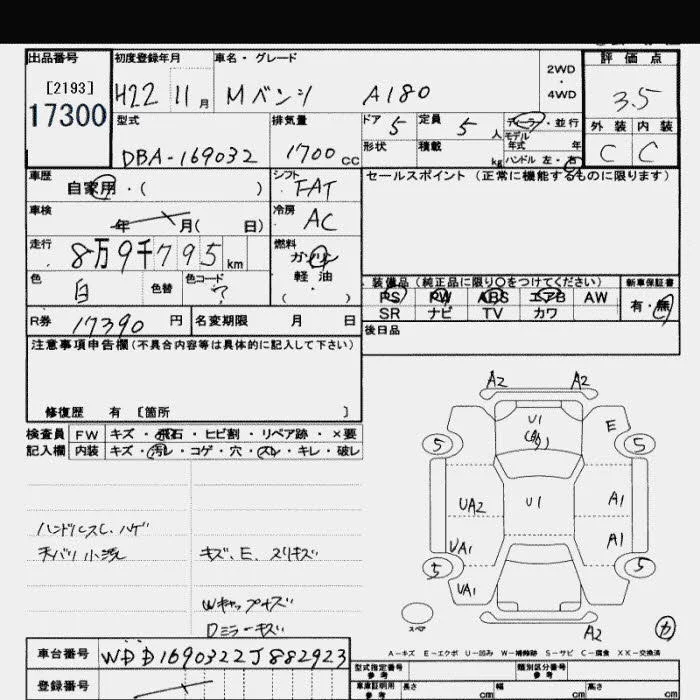 出品番号 初度登録年月 車名・グレード 2WD・4WD 評価点
[2193] H22 11月 Mベンツ A180 3.5
17300
型式 排気量 ドア 5 定員 5人 ディーラー・並行 外装 内装
DBA-169032 1700cc 形状 積載 kg モデル年式 年 C C
ハンドル 左・右
車歴 自家用・( ) シフト FAT セールスポイント (正常に機能するものに限ります)
車検 年 月( 日) 冷房 AC
走行 8万9千795km 燃料 ガソリン
色 白 色替 色コード ? 軽油
( )
装備品(純正品に限り○をつけてください) 新車保証書
PS PW ABS エアB AW 有・無
SR ナビ TV カワ
R券 17390円 名変期限 月 日 後日品
注意事項申告欄(不具合内容等は具体的に記入して下さい)
修復歴 有 〔箇所 〕
検査員 FW キズ・飛石・ヒビ割・リペア跡・×要
記入欄 内装 キズ・汚レ・コゲ・穴・スレ・キレ・破レ
ハンドルスレ、ハゲ
天バリ小汚 キズ、E、スリキズ
Wキャップキズ
Dミラーキズ
A2 A2
U1
E
5 5
UA2 U1 A1
UA1 A1
5 5
UA1
A2
スペア
A-キズ E-エクボ U-凹み W-補修跡 S-サビ C-腐食 XX-交換済
車台番号 WDD1690322J882923
登録番号
型式指定番号 類別区分番号
参考 参考
車庫証明用 長さ 幅 高さ
参考 cm cm cm